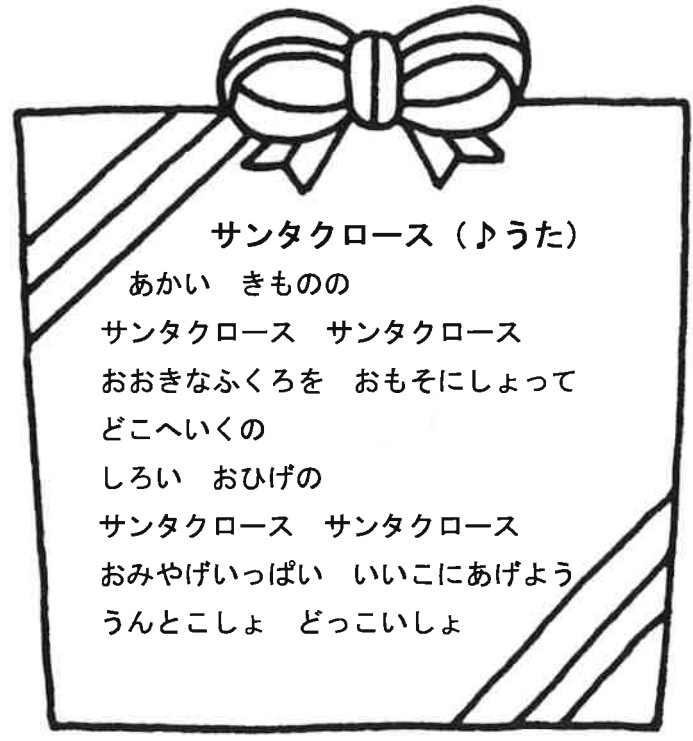 サンタクロース（♪うた）
あかい　きものの
サンタクロース　サンタクロース
おおきなふくろを　おもそにしょって
どこへいくの
しろい　おひげの
サンタクロース　サンタクロース
おみやげいっぱい　いいこにあげよう
うんとこしょ　どっこいしょ